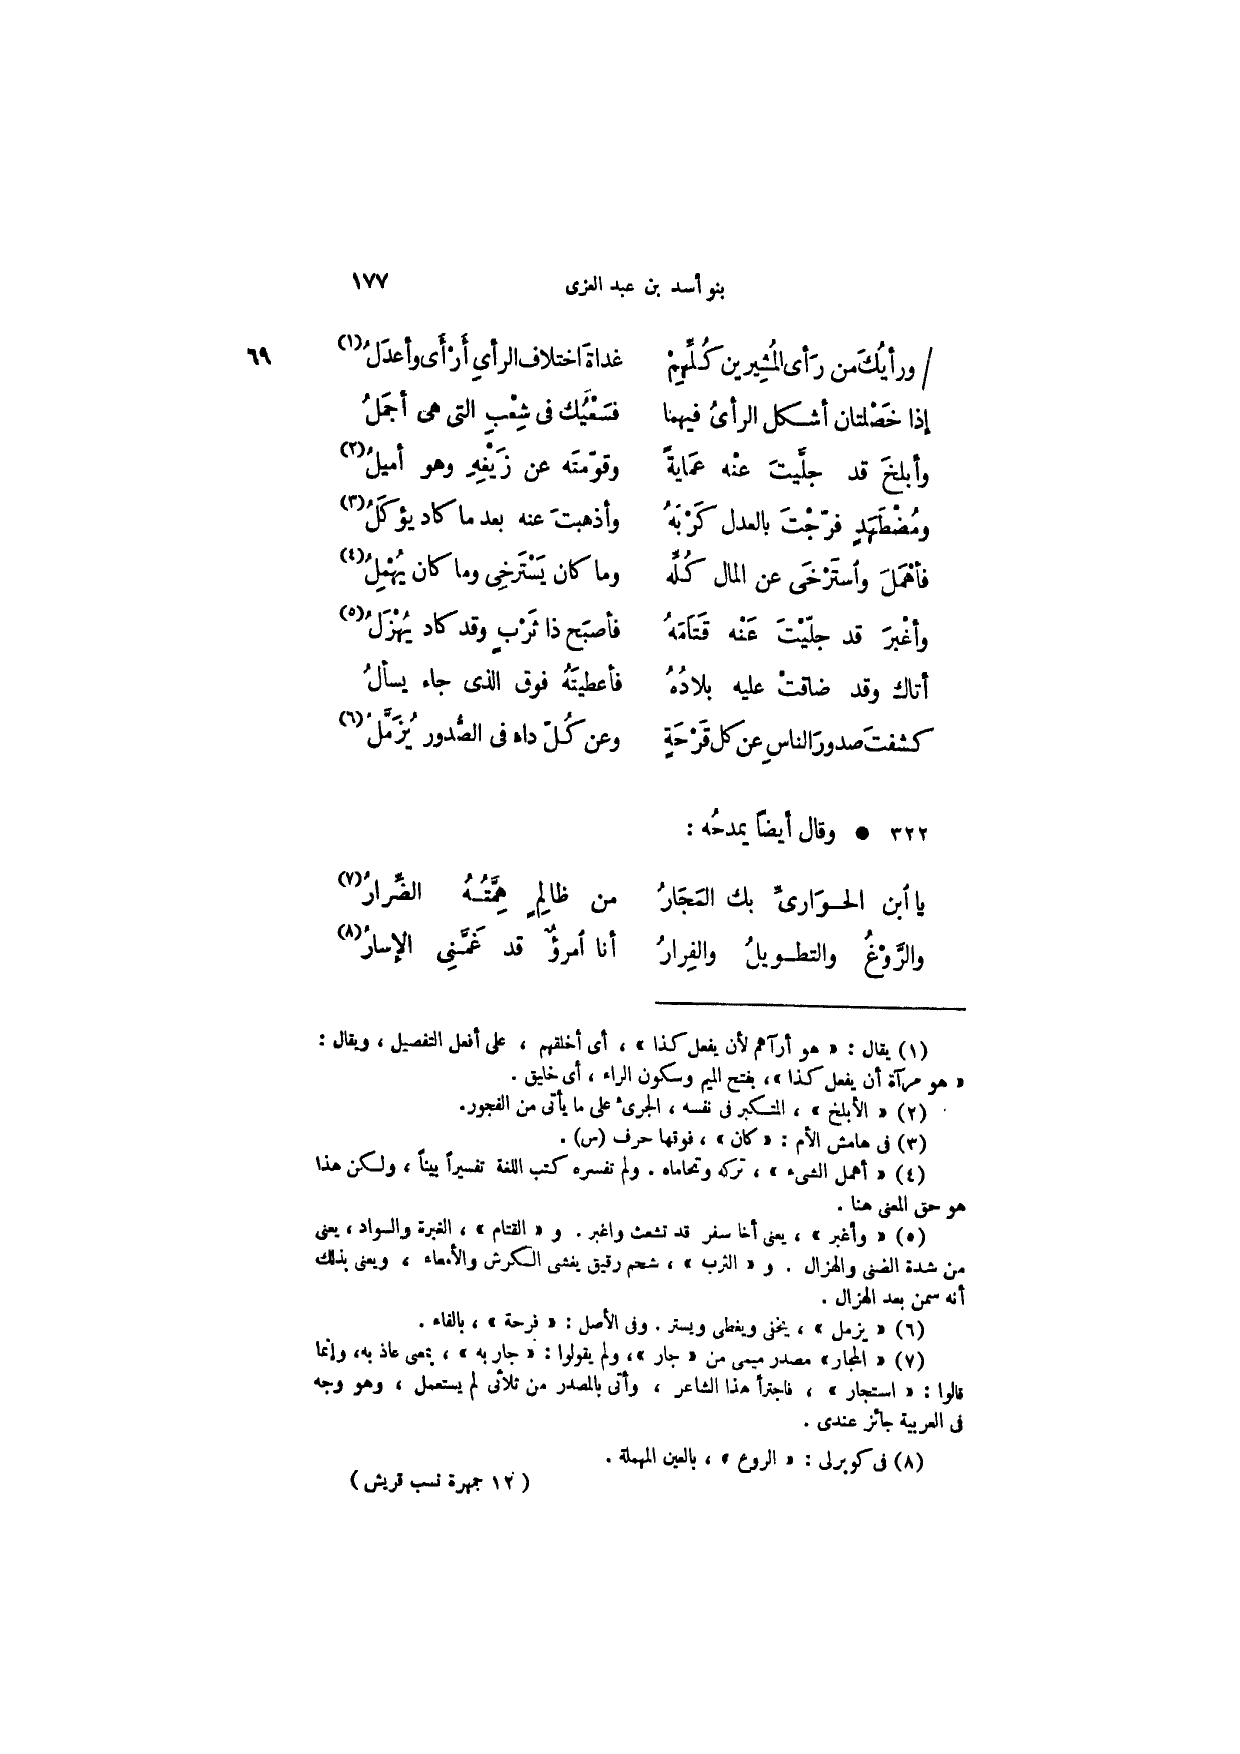 بنو أسد بن عبد العزى ١٧٧
/ ورأيُكَ من رَأى المُشِيرين كُلِّهِمْ غداةَ اختلاف الرأيِ أَرْأَى وأعدَلُ(١) ٦٩
إذا خَصْلتان أشكل الرأىُ فيهما فسَعْيُك فى شِعْبِ التى هى أجمَلُ
وأبلخَ قد جلَّيتَ عنْه عَمَايةً وقوّمتَه عن زَيْفِهِ وهو أميلُ(٢)
ومُضْطَهَدٍ فرّجْتَ بالعدل كَرْبَهُ وأذهبتَ عنه بعد ما كاد يؤكَلُ(٣)
فأهْمَلَ وأستَرْخَى عن المال كُلِّه وما كان يَسْتَرخِى وما كان يُهْمِلُ(٤)
وأغْبرَ قد جلّيْتَ عَنْه قَتَامَهُ فأصبَح ذا ثَرْبٍ وقد كاد يُهْزَلُ(٥)
أتاك وقد ضاقتْ عليه بلادُهُ فأعطيتَهُ فوق الذى جاء يسألُ
كشفتَ صدورَ الناسِ عن كل قَرْحَةٍ وعن كُلّ داه فى الصُّدور يُزَمَّلُ(٦)
٣٢٢ ● وقال أيضاً يمدحُه :
يا أبن الحوَارىِّ بك المَجَارُ من ظالِمٍ هِمَّتُهُ الضِّرارُ(٧)
والرَّوْغُ والتطويلُ والفِرارُ أنا أمرؤٌ قد غَمَّنِى الإسارُ(٨)
(١) يقال : « هو أرآهم لأن يفعل كذا » ، أى أخلقهم ، على أفعل التفصيل ، ويقال :
« هو مرآة أن يفعل كذا »، بفتح الميم وسكون الراء ، أى خليق .
(٢) « الأبلخ » ، المتكبر فى نفسه ، الجرىء على ما يأتى من الفجور.
(٣) فى هامش الأم : « كان » ، فوقها حرف (س) .
(٤) « أهمل الشىء » ، تركه وتحاماه . ولم تفسره كتب اللغة تفسيراً بيناً ، ولكن هذا
هو حق المعنى هنا .
(٥) « وأغبر » ، يعنى أخا سفر قد تشعث واغبر . و « القتام » ، الغبرة والسواد ، يعنى
من شدة الضنى والهزال . و « الثرب » ، شحم رقيق يغشى الكرش والأمعاء ، ويعنى بذلك
أنه سمن بعد الهزال .
(٦) « يزمل » ، يخفى ويغطى ويستر . وفى الأصل : « فرحة » ، بالفاء .
(٧) « المجار» مصدر ميمى من « جار »، ولم يقولوا : « جار به » ، بمعنى عاذ به، وإنما
قالوا : « استجار » ، فاجترأ هذا الشاعر ، وأتى بالمصدر من ثلاثى لم يستعمل ، وهو وجه
فى العربية جائز عندى .
(٨) فى كوبرلى : « الروع » ، بالعين المهملة .
( ١٢ جمهرة نسب قريش )